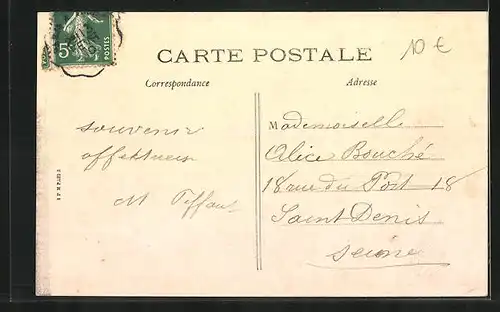 5c
POSTES
CARTE POSTALE
10 €
Correspondance
Adresse
souvenir
affektueux
M Tiffaut
Mademoiselle
Alice Bouché
18 rue du Port 18
Saint Denis
Seine